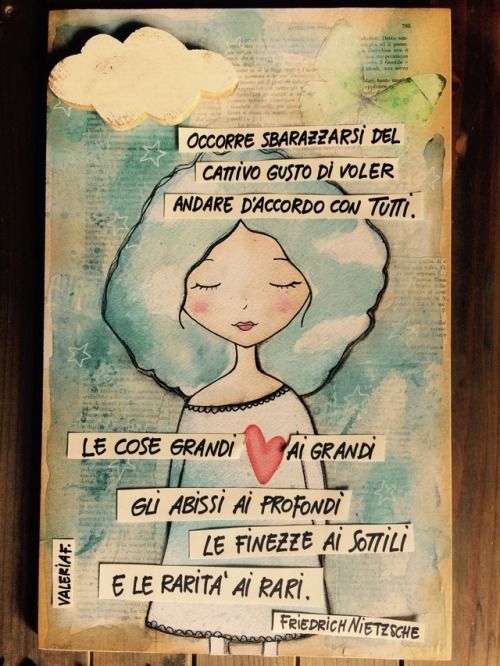 785
OCCORRE SBARAZZARSI DEL
CATTIVO GUSTO DI VOLER
ANDARE D'ACCORDO CON TUTTI.
LE COSE GRANDI AI GRANDI
GLI ABISSI AI PROFONDI
LE FINEZZE AI SOTTILI
E LE RARITA' AI RARI.
VALERIA F.
FRIEDRICH NIETZSCHE